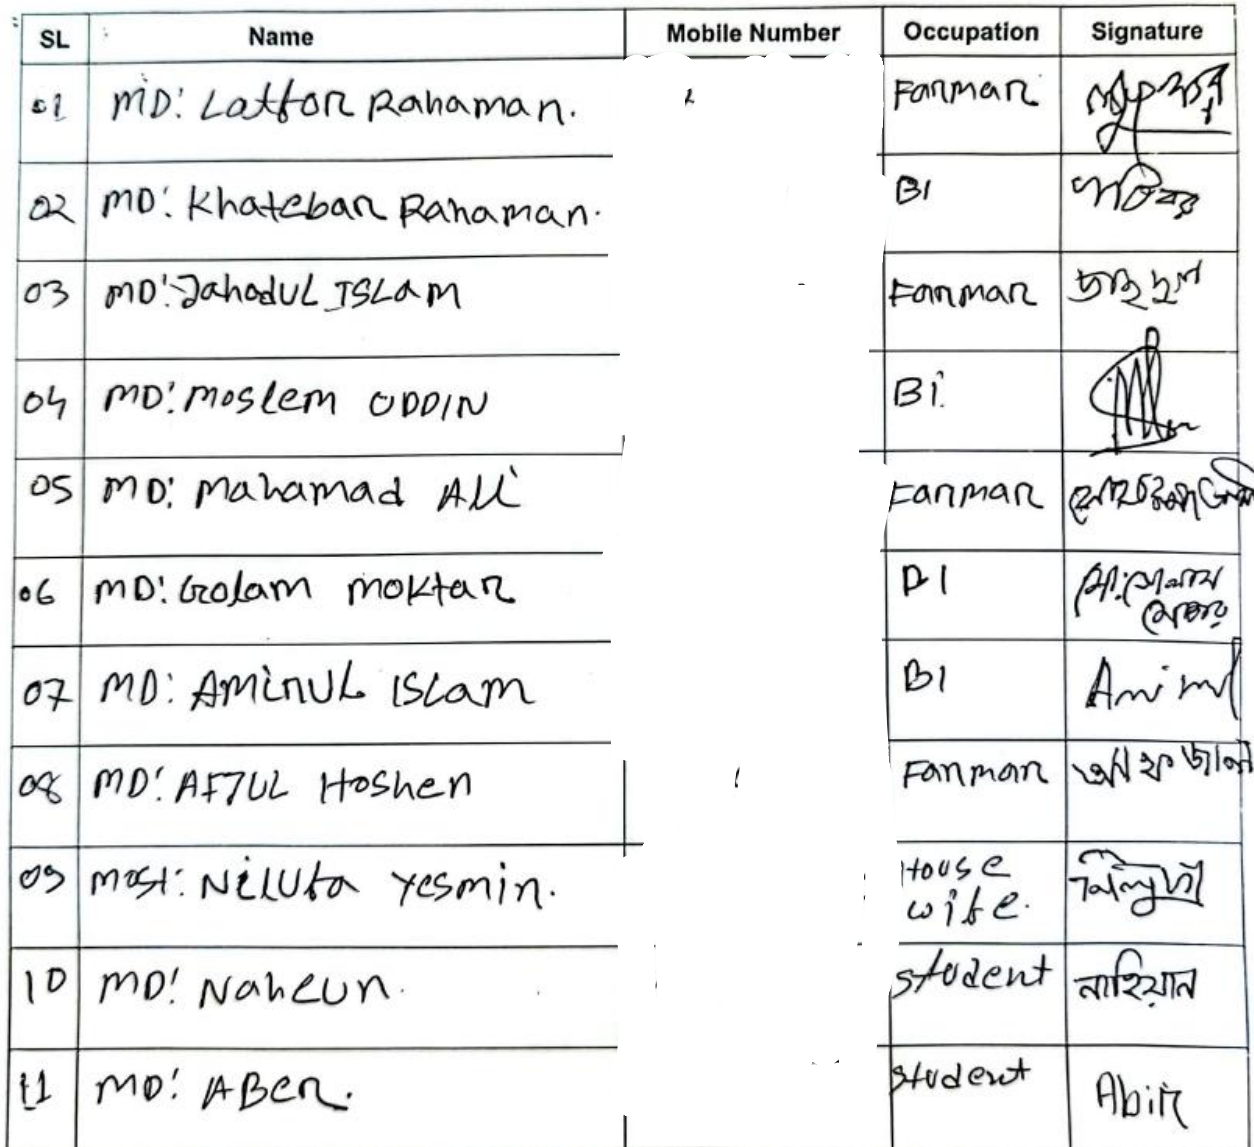 SL Name Mobile Number Occupation Signature
01 MD: Latfor Rahaman. Fanmar
02 MD: Khatebar Rahaman. BI
03 MD: Jahadul ISLam Fanmar
04 MD: Moslem ODDIN Bi.
05 MD: Mahamad ALi Fanmar
06 MD: Golam Moktar BI
07 MD: AMinUL ISLam BI
08 MD: AF7UL Hoshen Fanmar আফজাল
09 Most: NilUfa Yesmin. House
wife.
10 MD: Naheun. Student নাহিয়ান
11 MD: ABer. Student Abir